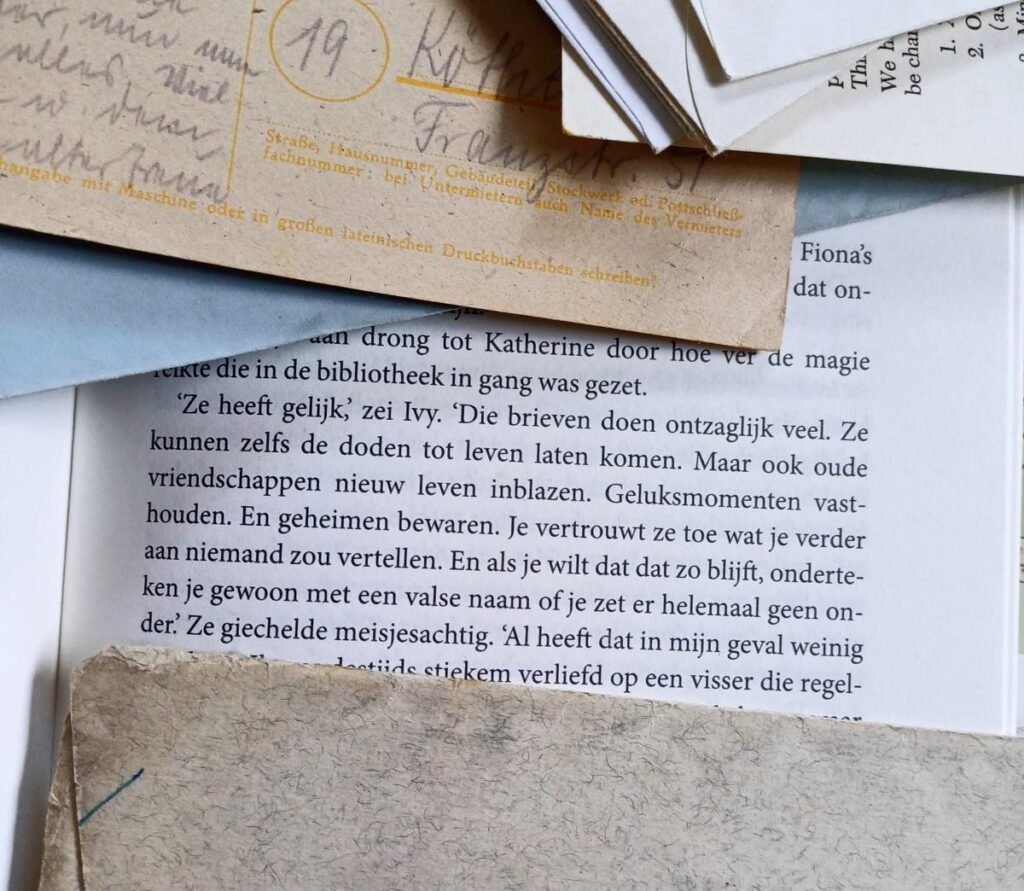 19
Köthe
Franzstr. 51
Straße, Hausnummer, Gebäudeteil, Stockwerk od. Postschließ-
fachnummer; bei Untermietern auch Name des Vermieters
mit Maschine oder in großen lateinischen Druckbuchstaben schreiben!
We h
be cha
1.
2.
(as
Fiona’s
dat on-
drong tot Katherine door hoe ver de magie
reikte die in de bibliotheek in gang was gezet.
‘Ze heeft gelijk,’ zei Ivy. ‘Die brieven doen ontzaglijk veel. Ze
kunnen zelfs de doden tot leven laten komen. Maar ook oude
vriendschappen nieuw leven inblazen. Geluksmomenten vast-
houden. En geheimen bewaren. Je vertrouwt ze toe wat je verder
aan niemand zou vertellen. En als je wilt dat dat zo blijft, onderte-
ken je gewoon met een valse naam of je zet er helemaal geen on-
der.’ Ze giechelde meisjesachtig. ‘Al heeft dat in mijn geval weinig
destijds stiekem verliefd op een visser die regel-